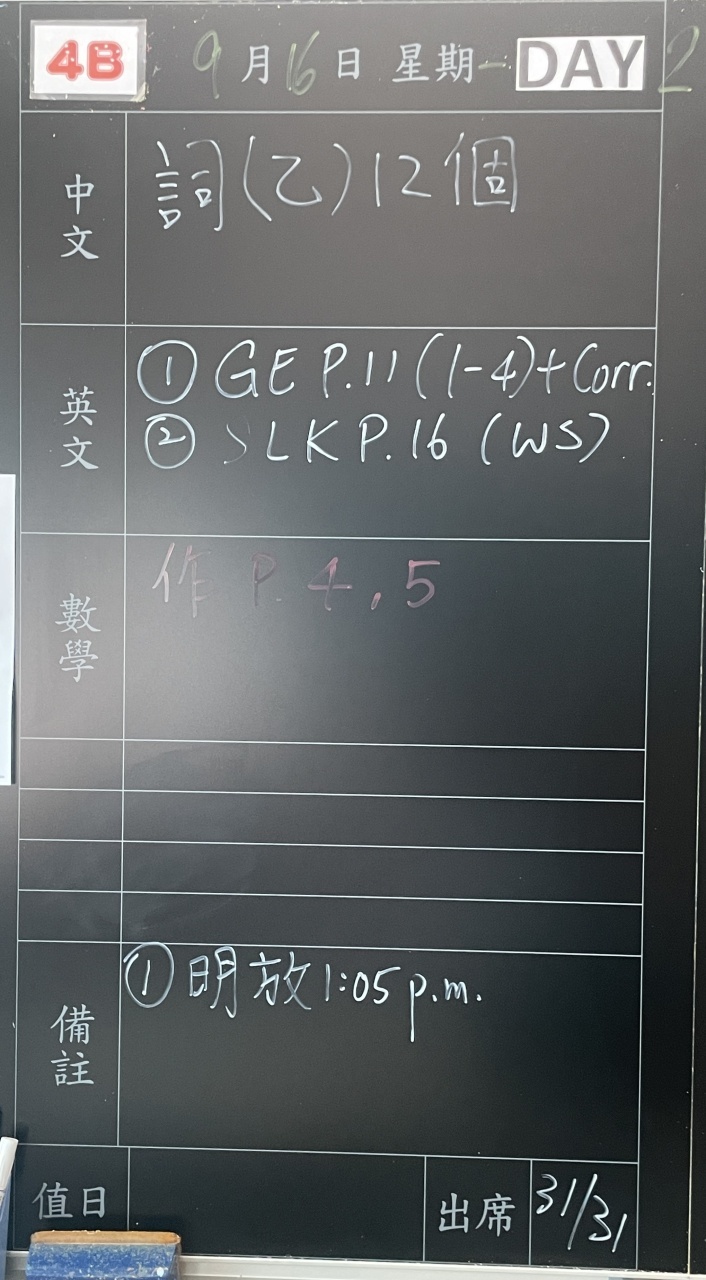 4B 9月16日 星期一 DAY 2
中文 詞(乙)12個
英文 ① GE P.11 (1-4)+Corr.
② SLK P.16 (WS)
數學 作 P. 4, 5
備註 ① 明放1:05 p.m.
值日 出席 31/31